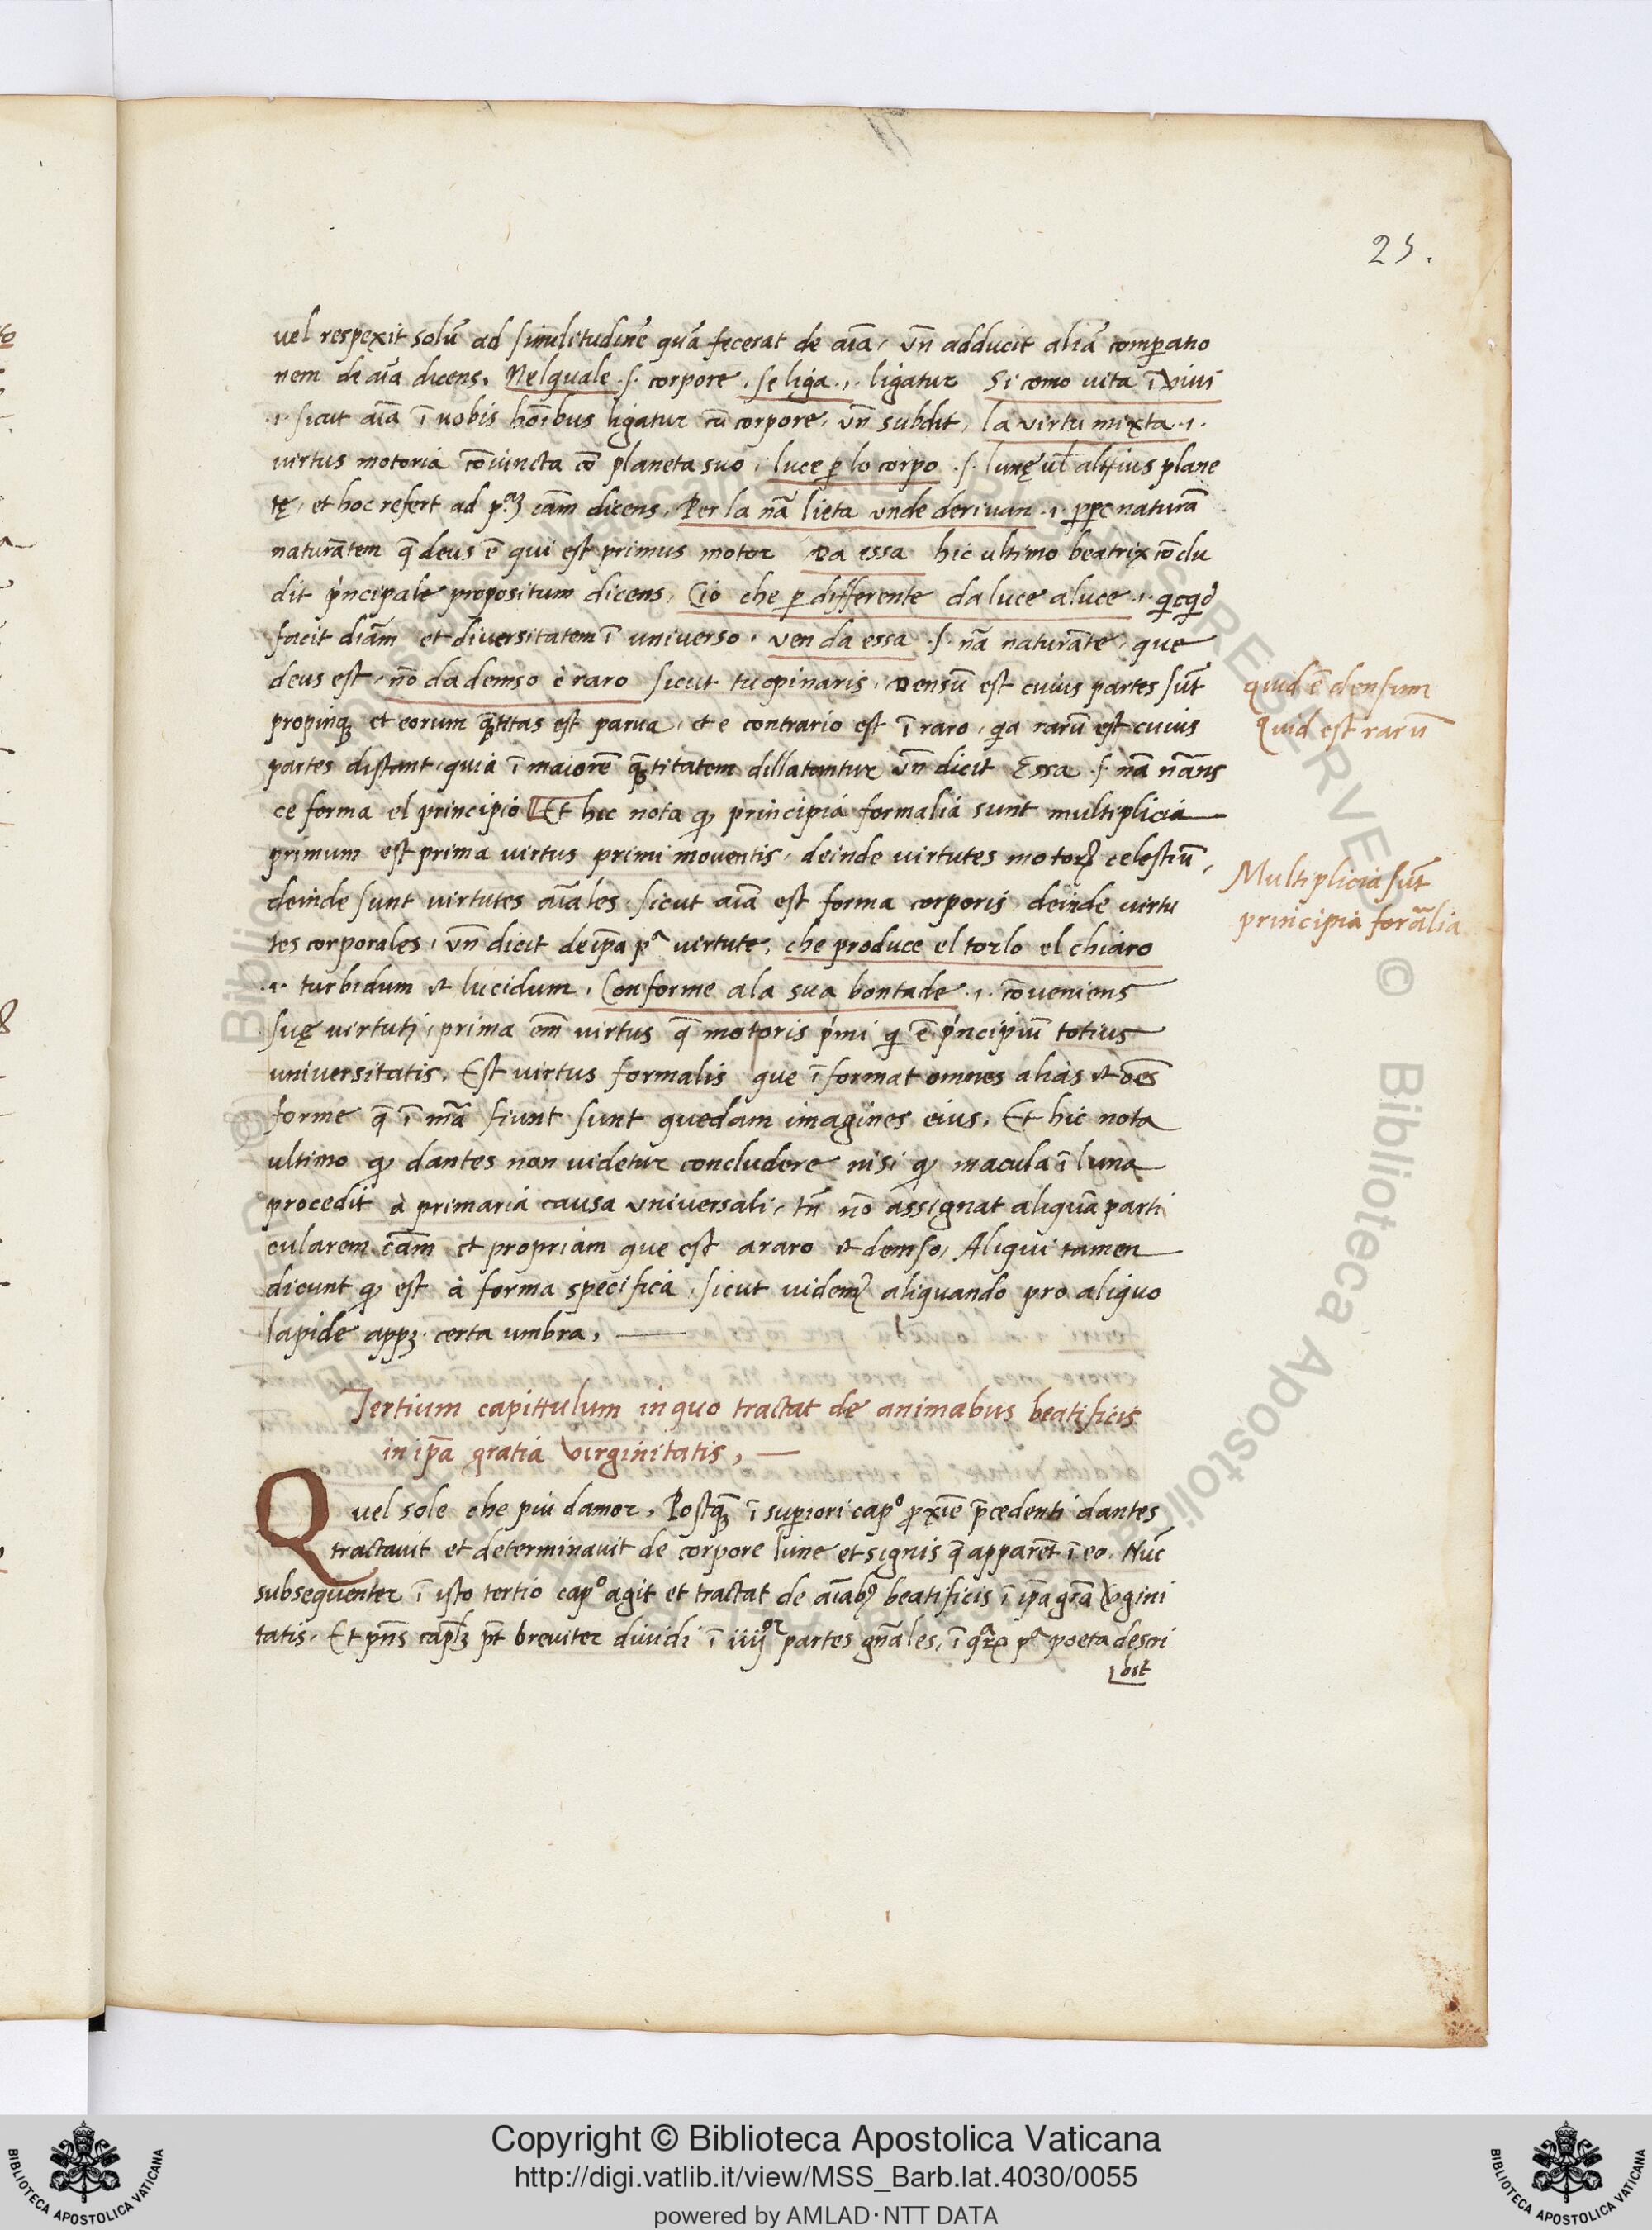 25.
uel respexit solū ad similitudinē quā fecerat de aīa, vn̄ adducit aliā comparatio
nem de aīa dicens, Nel quale .s. corpore, se liga .i. ligatur Si como uita ī vius
.i. sicut aīa ī uobis hoībus ligatur cū corpore, vn̄ subdit, la virtu mixta .i.
virtus motoria cōiuncta cō planeta suo, luce p̱ lo corpo .s. lunę ul̄ alterius plane
tę, et hoc refert ad pᵃꝫ cām dicens, Per la nā lieta vnde derivan .i. ꝓꝑ naturā
naturātem q̄ deus ē qui est primus motor Da essa hic ultimo beatrix cōclu
dit pr̍ncipale propositum dicens, Ciò che p̱ differente da luce a luce .i. qicqid
facit diām et diversitatem ī universo, ven da essa .s. nā naturāte, que
deus est, nō da demso è raro sicut tu opinaris, Densū est cuius partes sūt
propinq̄ et eorum q̄titas est parua, et e contrario est ī raro, qa rarū est cuius
partes distant, quia ī maiorē q̄titatem dillatantur vn̄ dicit Essa .s. nā nāns
ce forma el principio Et hic nota ꝙ principia formalia sunt multiplicia
primum est prima virtus primi moventis, deinde virtutes motoꝝ celestiū,
deinde sunt virtutes aīales, sicut aīa est forma corporis, deinde virtu
tes corporales, vn̄ dicit de ip̄a pᵃ virtute, che produce el torlo el chiaro
.i. turbidum et lucidum, Conforme ala sua bontade .i. cōueniens
suę virtuti, prima em̄ virtus q̄ motoris pr̍mi q ē pr̍ncipiū totius
universitatis, Est virtus formalis que īformat omnes alias et oēs
forme q̄ ī mā fiunt sunt quedam imagines eius, Et hic nota
ultimo ꝙ dantes non videtur concludere nisi ꝙ macula ī luna
procedit à primaria causa vniversali, tn̄ nō assignat aliquā parti
cularem cām et propriam que est araro et demso, Aliqui tamen
dicunt ꝙ est à forma specifica, sicut uidemꝰ aliquando pro aliquo
lapide appꝫ certa umbra,
Tertium capittulum in quo tractat de animabus beatificis
in ip̄a gratia virginitatis,
Quel sole che piu damor, Postq̄ ī superiori capº ꝓxīe p̄cedenti dantes
tractauit et determinavit de corpore lune et signis q̄ apparēt ī eo. Nūc
subsequenter ī ysto tertio capº agit et tractat de aīabꝰ beatificis ī ip̄a grā v̄gini
tatis, Et pn̄s cap̄lꝫ pt̄ breviter dividi ī iiijᵒʳ partes gn̄ales, ī qᵃꝝ pᵃ poeta descri
bit
quid ē densum
Quid est rarū
Multiplicia sūt
principia forālia
Copyright © Biblioteca Apostolica Vaticana
http://digi.vatlib.it/view/MSS_Barb.lat.4030/0055
powered by AMLAD·NTT DATA
BIBLIOTECA APOSTOLICA VATICANA
BIBLIOTECA APOSTOLICA VATICANA